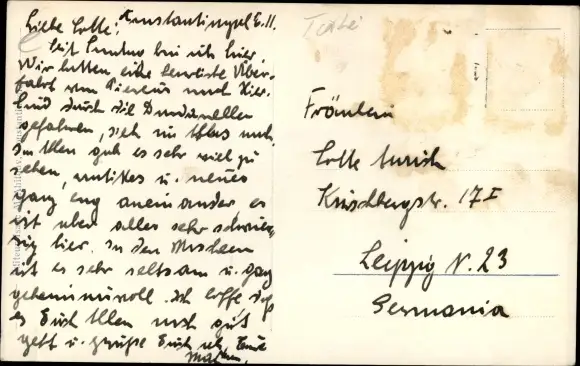 Konstantinopel 6.11.
Liebe Lotte!
Seit Sonntag bin ich hier.
Wir hatten eine bewegte Über-
fahrt von Piräus nach hier.
Sind durch die Dardanellen
gefahren,
In Athen gab es sehr viel zu
sehen, antikes u. neues
ganz eng aneinander. es
ist aber alles sehr schmut-
zig hier. In den Moscheen
ist es sehr seltsam u. ganz
geheimnisvoll. Ich hoffe, daß
es Euch Allen noch gut
geht u. grüße Euch als Eure
Türkei
Fräulein
Lotte
Kirschbergstr. 17 I
Leipzig N. 23
Germania